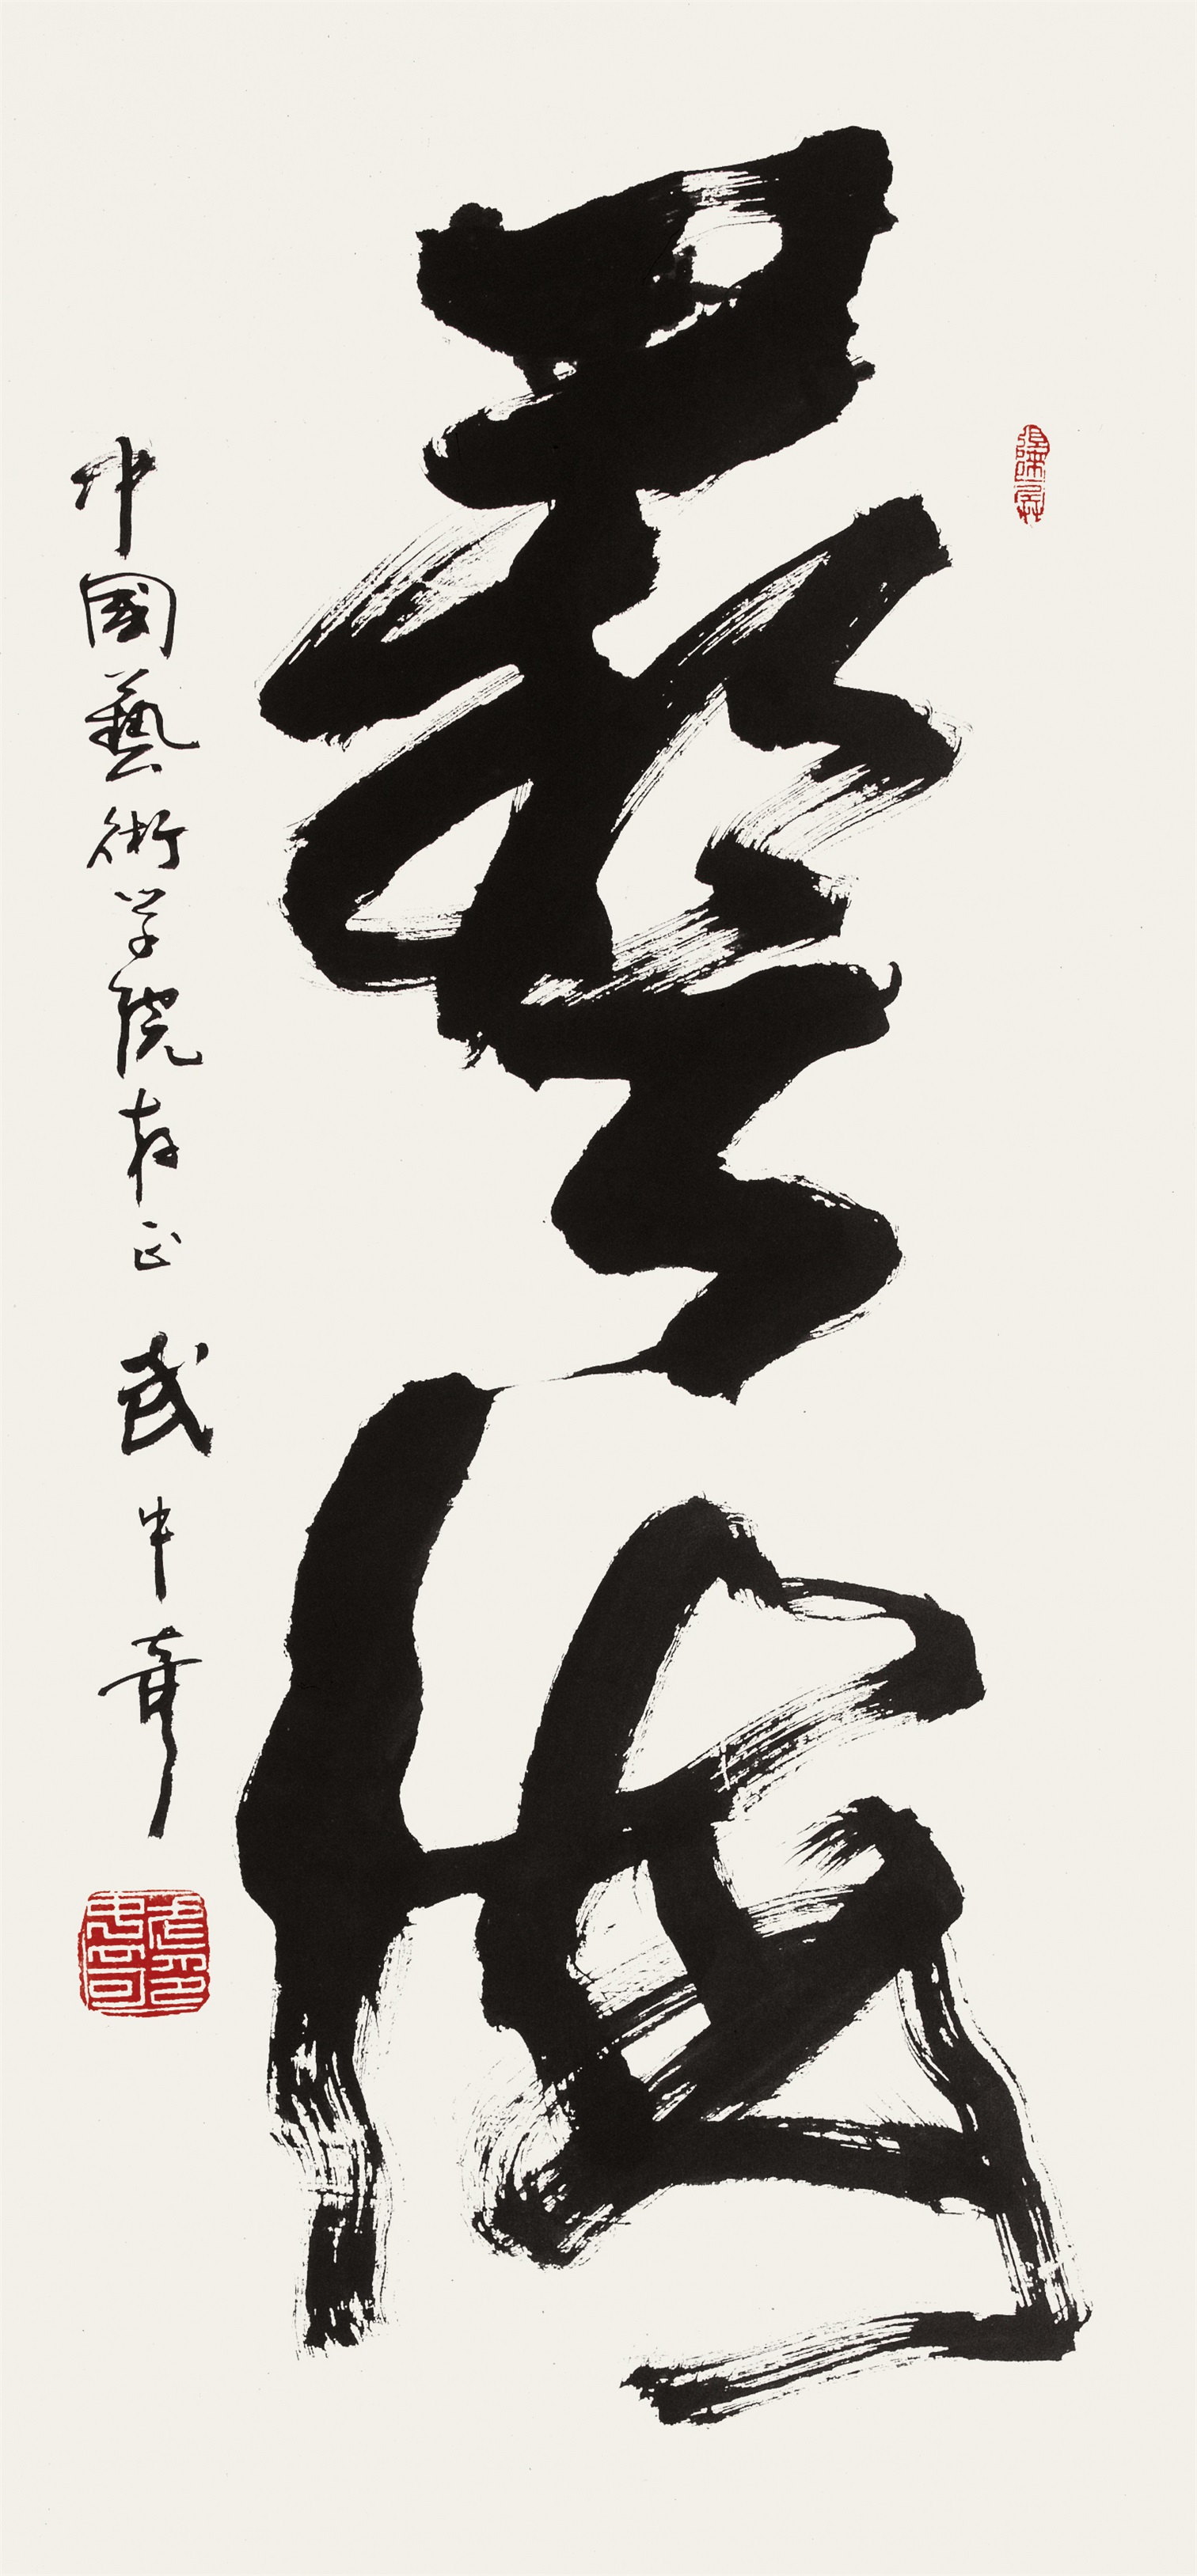 藝海
中國藝術学院存正 武中奇